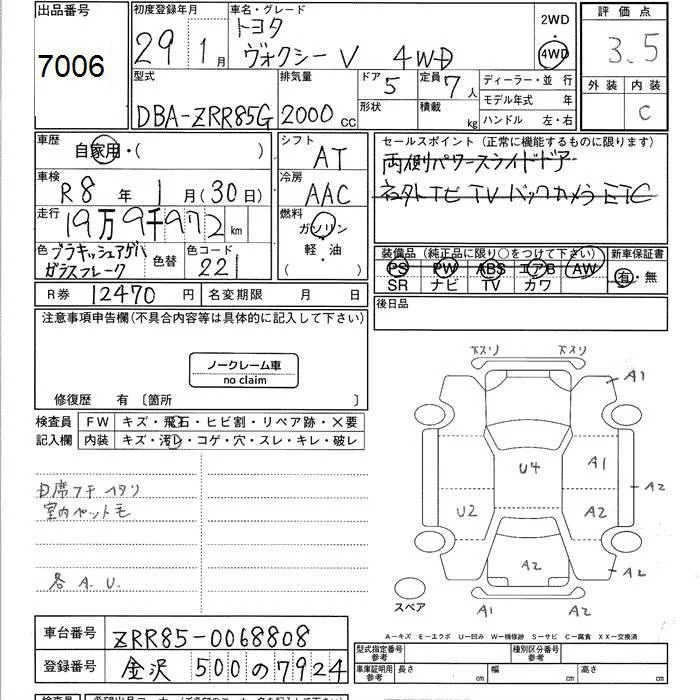 出品番号
7006
初度登録年月
29年 1月
車名・グレード
トヨタ
ヴォクシー V 4WD
2WD
・
4WD
評価点
3.5
外装 内装
C
型式
DBA-ZRR85G
排気量
2000 cc
ドア
5
形状
定員
7人
積載
kg
ディーラー・並 行
モデル年式 年
ハンドル 左・右
車歴
自家用・( )
車検
R8年 1月(30日)
走行
19万9千972 km
色
ブラキッシュアゲハ
ガラスフレーク
色替
色コード
221
シフト
AT
冷房
AAC
燃料
ガソリン
・
軽・油
( )
セールスポイント (正常に機能するものに限ります)
両側パワースライドドア
TV バックカメラ ETC
装備品 (純正品に限り○をつけて下さい)
PS PW ABS エアB AW
SR ナビ TV カワ
新車保証書
有・無
R券 12470 円
名変期限 月 日
後日品
注意事項申告欄(不具合内容等は具体的に記入して下さい)
ノークレーム車
no claim
修復歴 有〔箇所 〕
検査員
記入欄
FW キズ・飛石・ヒビ割・リペア跡・×要
内装 キズ・汚レ・コゲ・穴・スレ・キレ・破レ
室内ペット毛
各A.U.
下スリ 下スリ
A1
U4 A1
A2
U2 A2
A2 A2
A1 A2
スペア
A-キズ E-エクボ U-凹み W-補修跡 S-サビ C-腐食 XX-交換済
車台番号
ZRR85-0068808
登録番号
金沢 500 の 7924
型式指定番号
参考
種別区分番号
参考
車庫証明用
参考
長さ cm
幅 cm
高さ cm
検査員